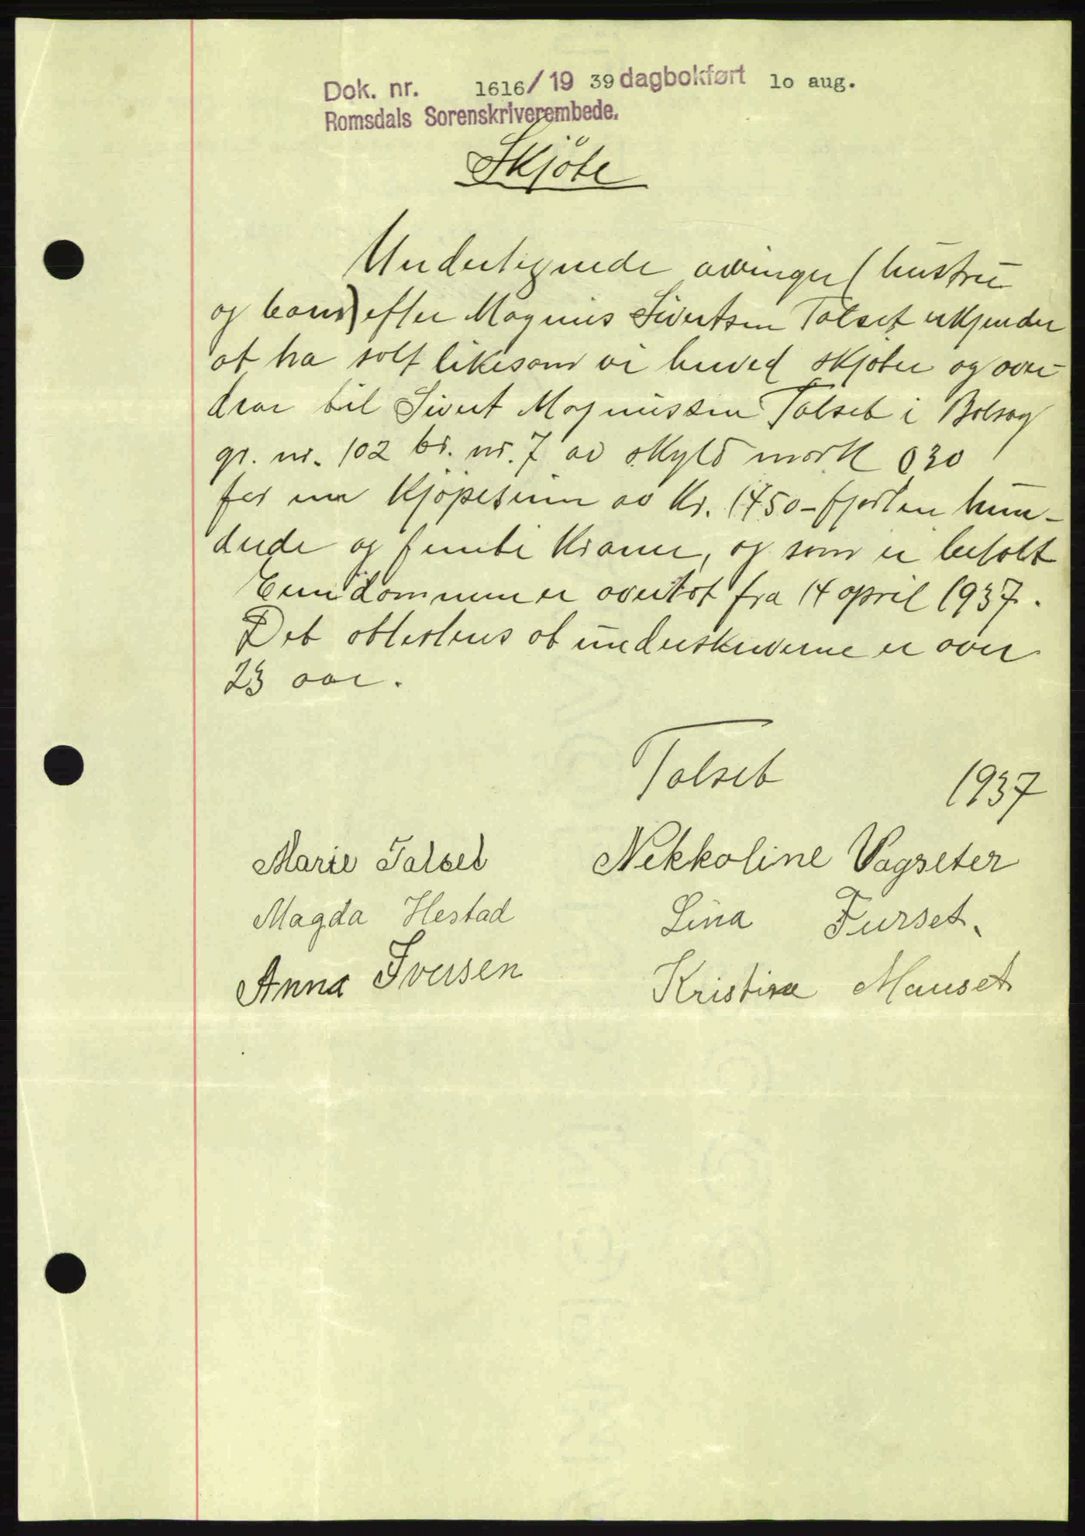 Dok. nr. 1616/19 39 dagbokført 10 aug.
Romsdals Sorenskriverembede.
Skjöte
Undertegnede arvinger (hustru
og barn) efter Magnus Sivertsen Talset erkjender
at ha solt likesom vi herved skjöter og over-
drar til Sivert Magnussen Talset i Bolsøy
gr. nr. 102 br. nr. 7 av skyld mark 030
for en Kjöpesum av Kr. 1450 - fjorten hun-
drede og femti Kroner, og som er betalt
Eiendommen er overtat fra 14 april 1937.
Det attesteres at underskriverne er over
23 aar.
Talset 1937
Marie Talset Nekkoline Vagseter
Magda Hestad Lina Furset.
Anna Iversen Kristine Mauset